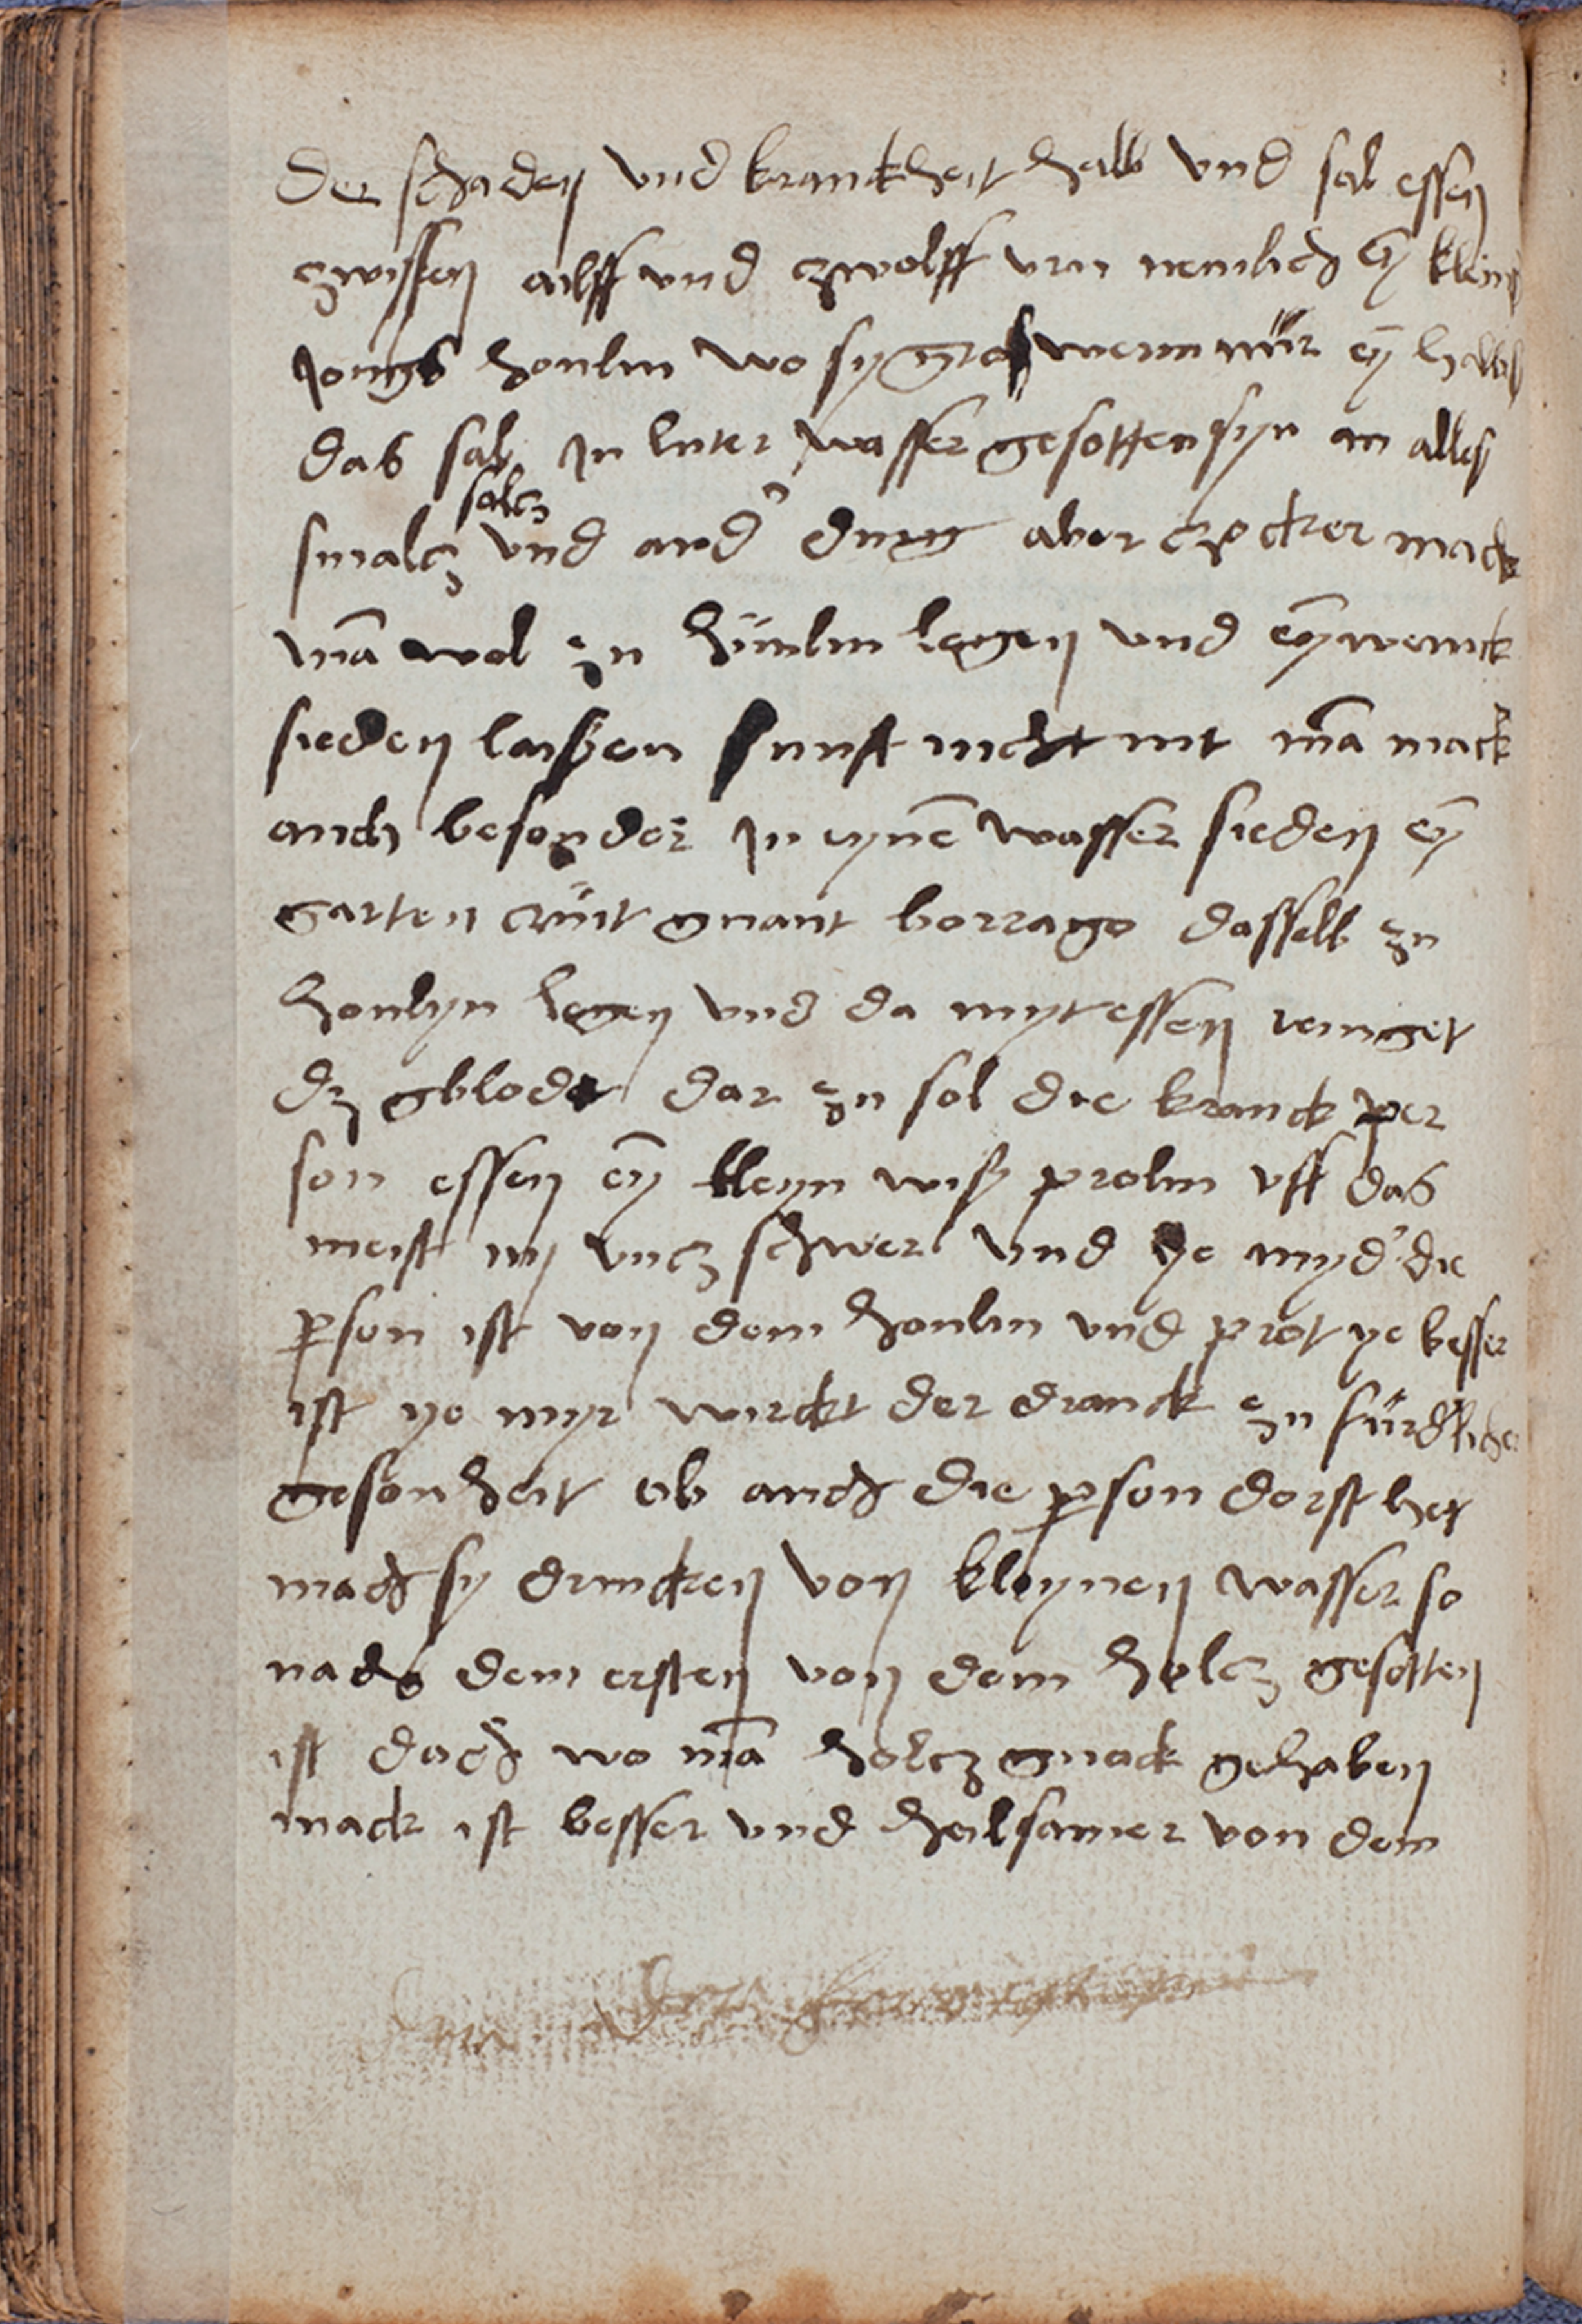 Der schaden vnd kranckheit halb vnd sal essen
zwissen ailff vnd zwolff vrn nemlich ey̅ klein
jongs honlin wo sy groß wern nür ey̅ halbs
das sal jn luter wasser gesotten syn an alles
salcz
smalcz vnd and' ding aber czocker mack
ma̅ wol zu hünlin legen vnd ey̅ wenick
sieden laißen sunst nicht mt ma̅ mack
auch besonder jn eyne̅ wasser sieden ey̅
garten crüt gnant borrago dasselb zu
honlyn legen vnd da myt essen reinget
dz gblodt dar zu sol die kranck per
son essen ey̅ kleyn wiß prolin vff das
meist iiij vncz schwer vnd ye myd' die
p̲son ist von dem honlin vnd prot ye besser
ist ye myr wirckt der dranck zu fürdlicher
gesonheit ob auch die p̲son dorst het
mach sy drincken von kleynen wasser so
nach dem ersten von dem holcz gesotten
ist doch wo ma̅ holcz gnock gehaben
mack ist besser vnd heilsamer von dem